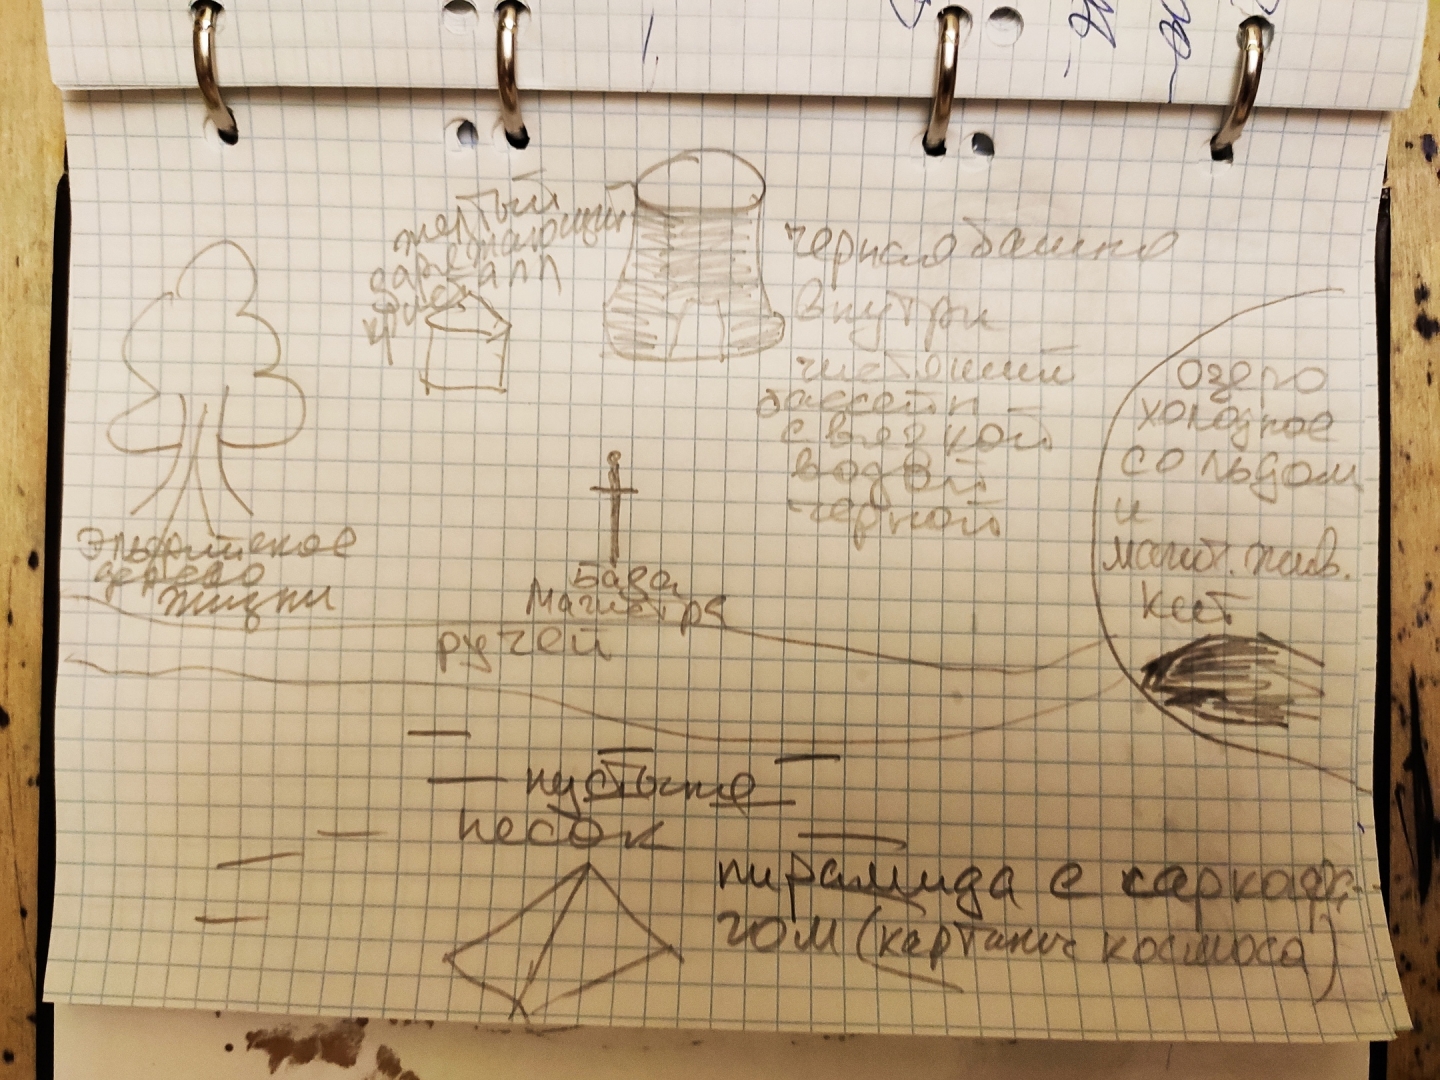 желтый
заряжающий
кристалл
черная башня
внутри
чистейший
бассейн
с вязкой
водой
черной
озеро
холодное
со льдом
и
магнит. жив.
кит
Эльфийское
дерево
жизни
База
Магистра
ручей
пустыня
песок
пирамида с саркофа-
гом (картинис космоса)